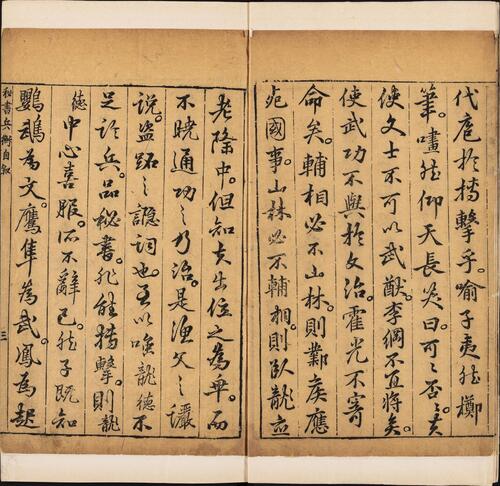 代庖於搏擊乎喻子夷然擲
筆嘯然仰天長笑曰可可否否夫
使文士不可以武猷李綱不宜將矣
使武功不與於文治霍光不寄
命矣輔相必不山林則鄴侯應
國事山林必不輔相則臥龍並
老隆中但知夫出位之為卑而
不曉通功之乃治是漁父之讕
說盜跖之讔詞也吾以喚龍德不
足於兵品秘書能搏擊則龍
德中心喜服而不辭已然子既知
鸚鵡為文鷹隼為武鳳為起
秘書兵衡自敘
三